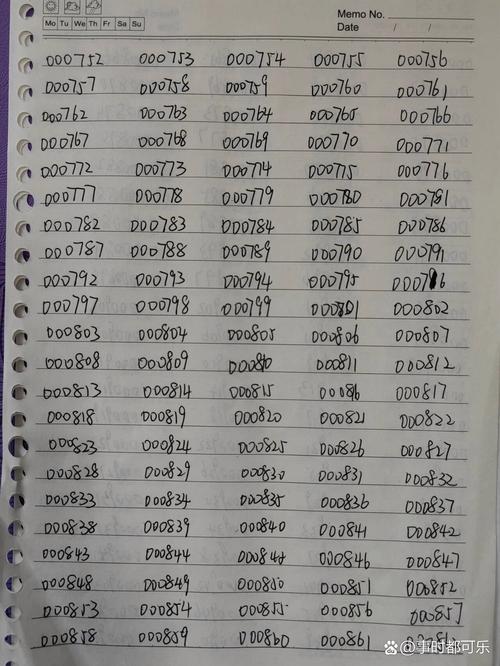 Memo No.
Mo Tu We Th Fr Sa Su
Date / /
000752 000753 000754 000755 000756
000757 000758 000759 000760 000761
000762 000763 000764 000765 000766
000767 000768 000769 000770 000771
000772 000773 000774 000775 000776
000777 000778 000779 000780 000781
000782 000783 000784 000785 000786
000787 000788 000789 000790 000791
000792 000793 000794 000795 000796
000797 000798 000799 000801 000802
000803 000804 000805 000806 000807
000808 000809 000810 000811 000812
000813 000814 000815 000816 000817
000818 000819 000820 000821 000822
000823 000824 000825 000826 000827
000828 000829 000830 000831 000832
000833 000834 000835 000836 000837
000838 000839 000840 000841 000842
000843 000844 000846 000847
000848 000849 000850 000851 000852
000853 000854 000855 000856 000857
000858 000859 000860 000861
@事时都可乐